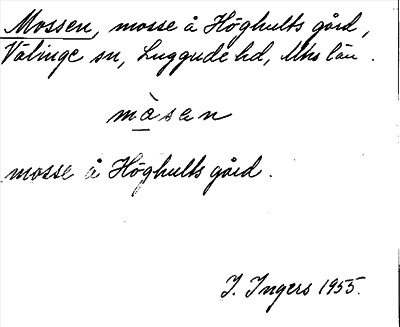 Mossen, mosse å Höghults gård,
Välinge sn, Luggude hd, Mhs län.
mòsen
mosse å Höghults gård.
I. Ingers 1955.